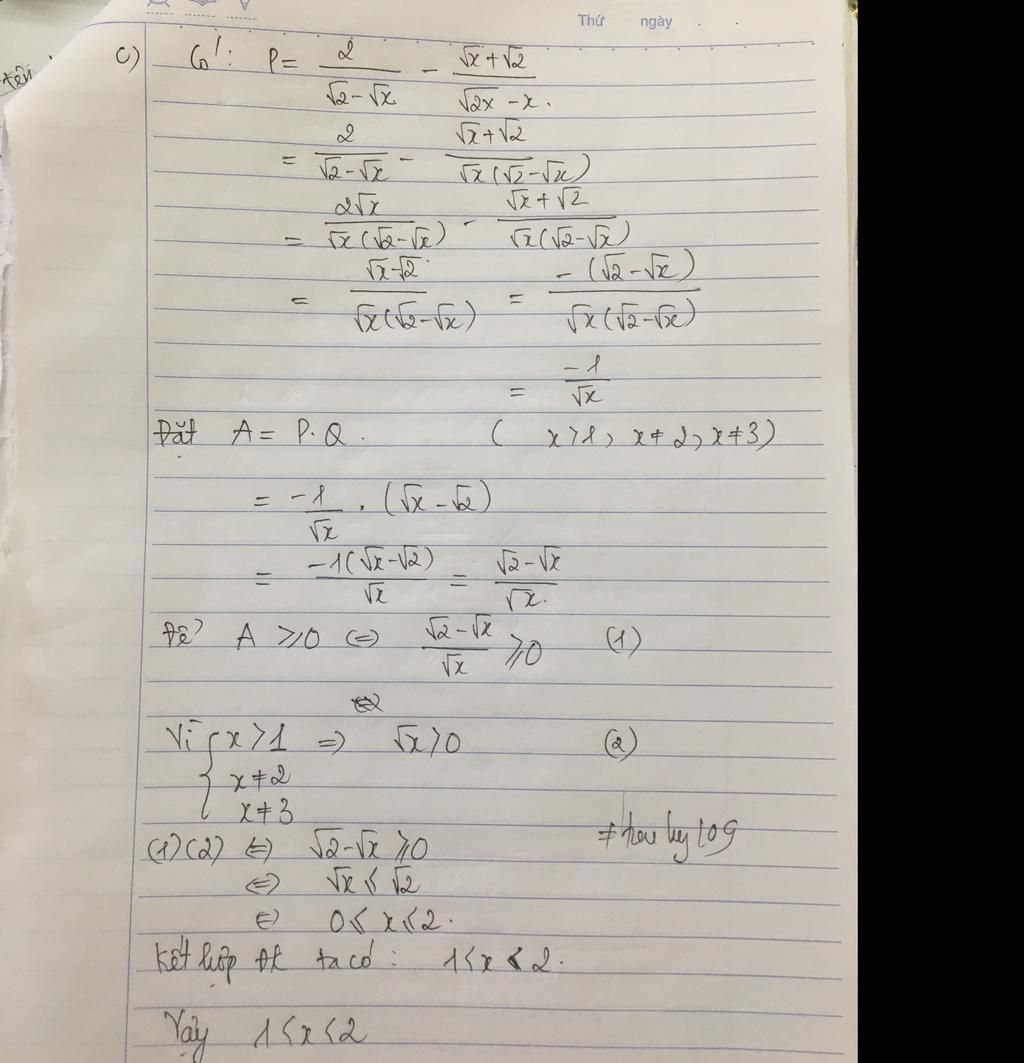 Thứ ngày . .
tên
c) Có: P = 2/(√2 - √x) - (√x + √2)/(√2x - x).
= 2/(√2 - √x) - (√x + √2)/(√x(√2 - √x))
= 2√x/(√x(√2 - √x)) - (√x + √2)/(√x(√2 - √x))
= (√x - √2)/(√x(√2 - √x)) = -(√2 - √x)/(√x(√2 - √x))
= -1/√x
Đặt A = P.Q. ( x > 1, x ≠ 2, x ≠ 3)
= -1/√x . (√x - √2)
= -1(√x - √2)/√x = (√2 - √x)/√x.
Để A ≥ 0 ⇔ (√2 - √x)/√x ≥ 0 (1)
Vì { x > 1 ⇒ √x > 0 (2)
x ≠ 2
x ≠ 3
(1)(2) ⇔ √2 - √x ≥ 0
⇔ √x ≤ √2
⇔ 0 ≤ x ≤ 2.
Kết hợp đk ta có: 1 < x < 2.
Vậy 1 < x < 2